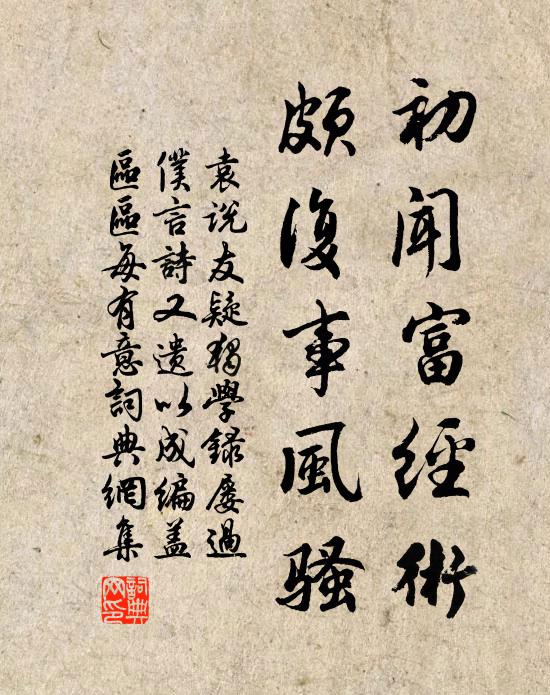 初闻富經術
頗復事風騷
袁说友疑獨學錄屡過
僕言詩又遺以成编盖
區區每有意詞典網集
詞典網印